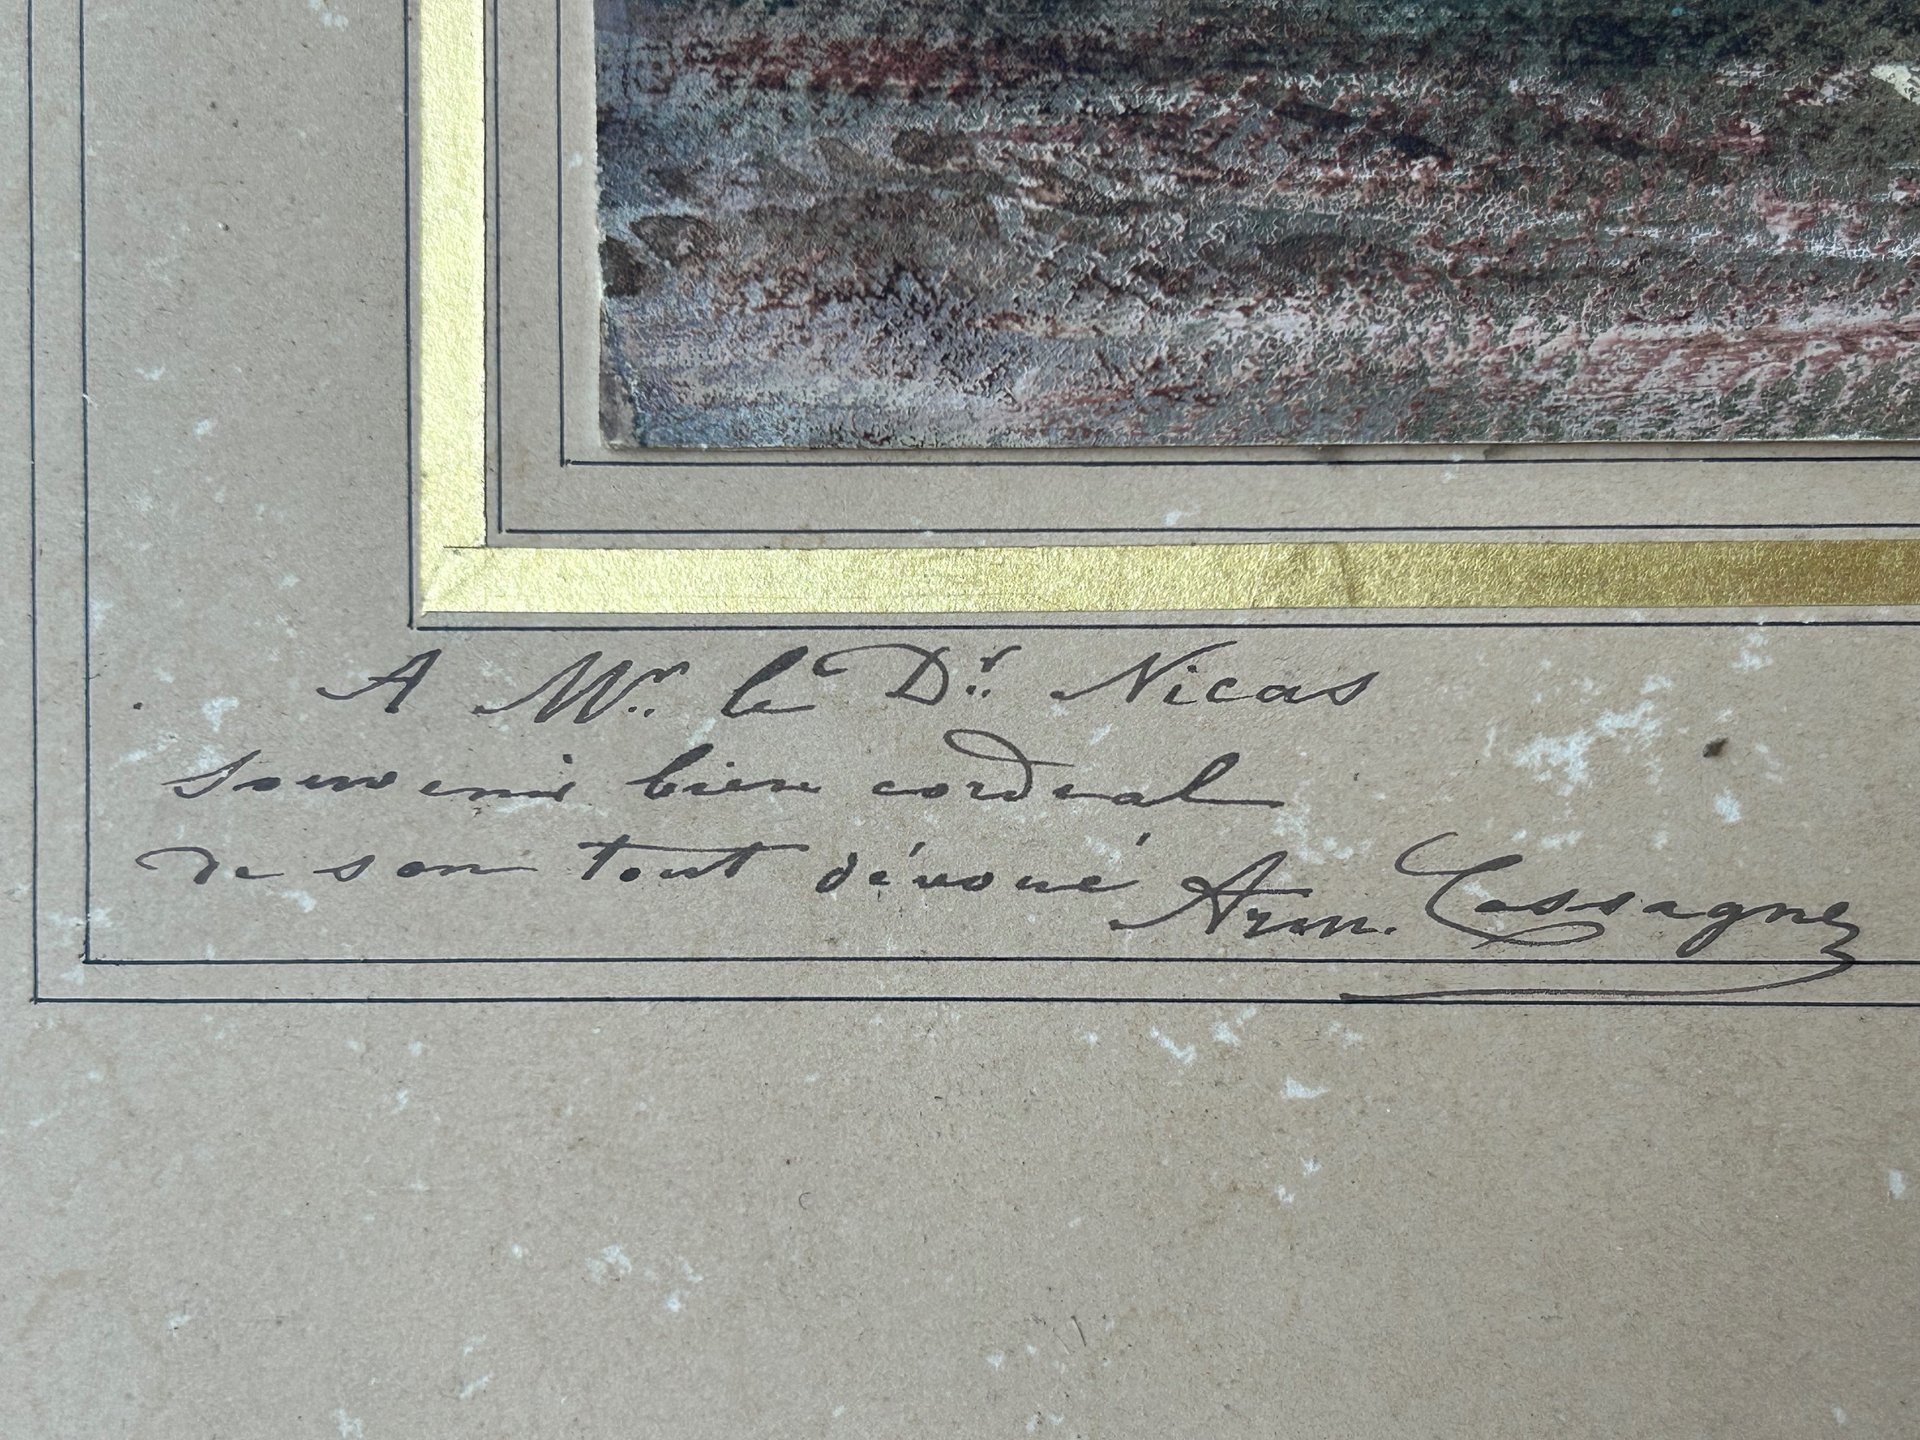 A Mr. le Dr. Nicas
souvenir bien cordial
de son tout dévoué Arm. Cassagne